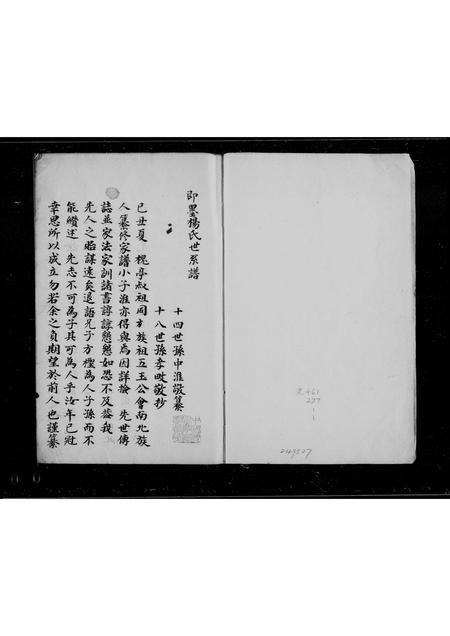 即墨楊氏世系譜
十四世孫中淮敬纂
十八世孫孝畋敬抄
己丑夏 槐亭叔祖同族祖五玉公會南北族
人纂修家譜小子淮亦得與焉因詳檢 先世傳
誌並家法家訓諸書諄諄懇懇如恐不及蓋我
先人之貽謀遠矣退語兄子方檉為人子孫而不
能纘述 先志不可為子其可為人乎汝年已冠
幸思所以成立勿若余之負期望於前人也謹纂
249527